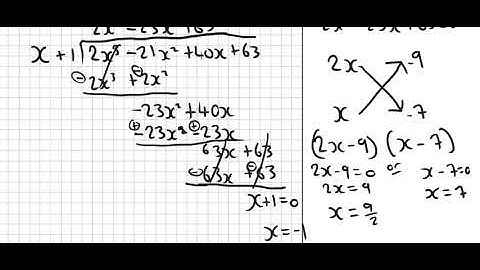 2x² -23x +63
x+1 2x³ -21x² +40x +63
⊖2x³ ⊕+2x²
-23x² +40x
⊕-23x² ⊕-23x
63x +63
⊖63x ⊖+63
x+1=0
x=-1
2x -9
x -7
(2x-9) (x-7)
2x-9=0 or x-7=0
2x=9 x=7
x=9/2